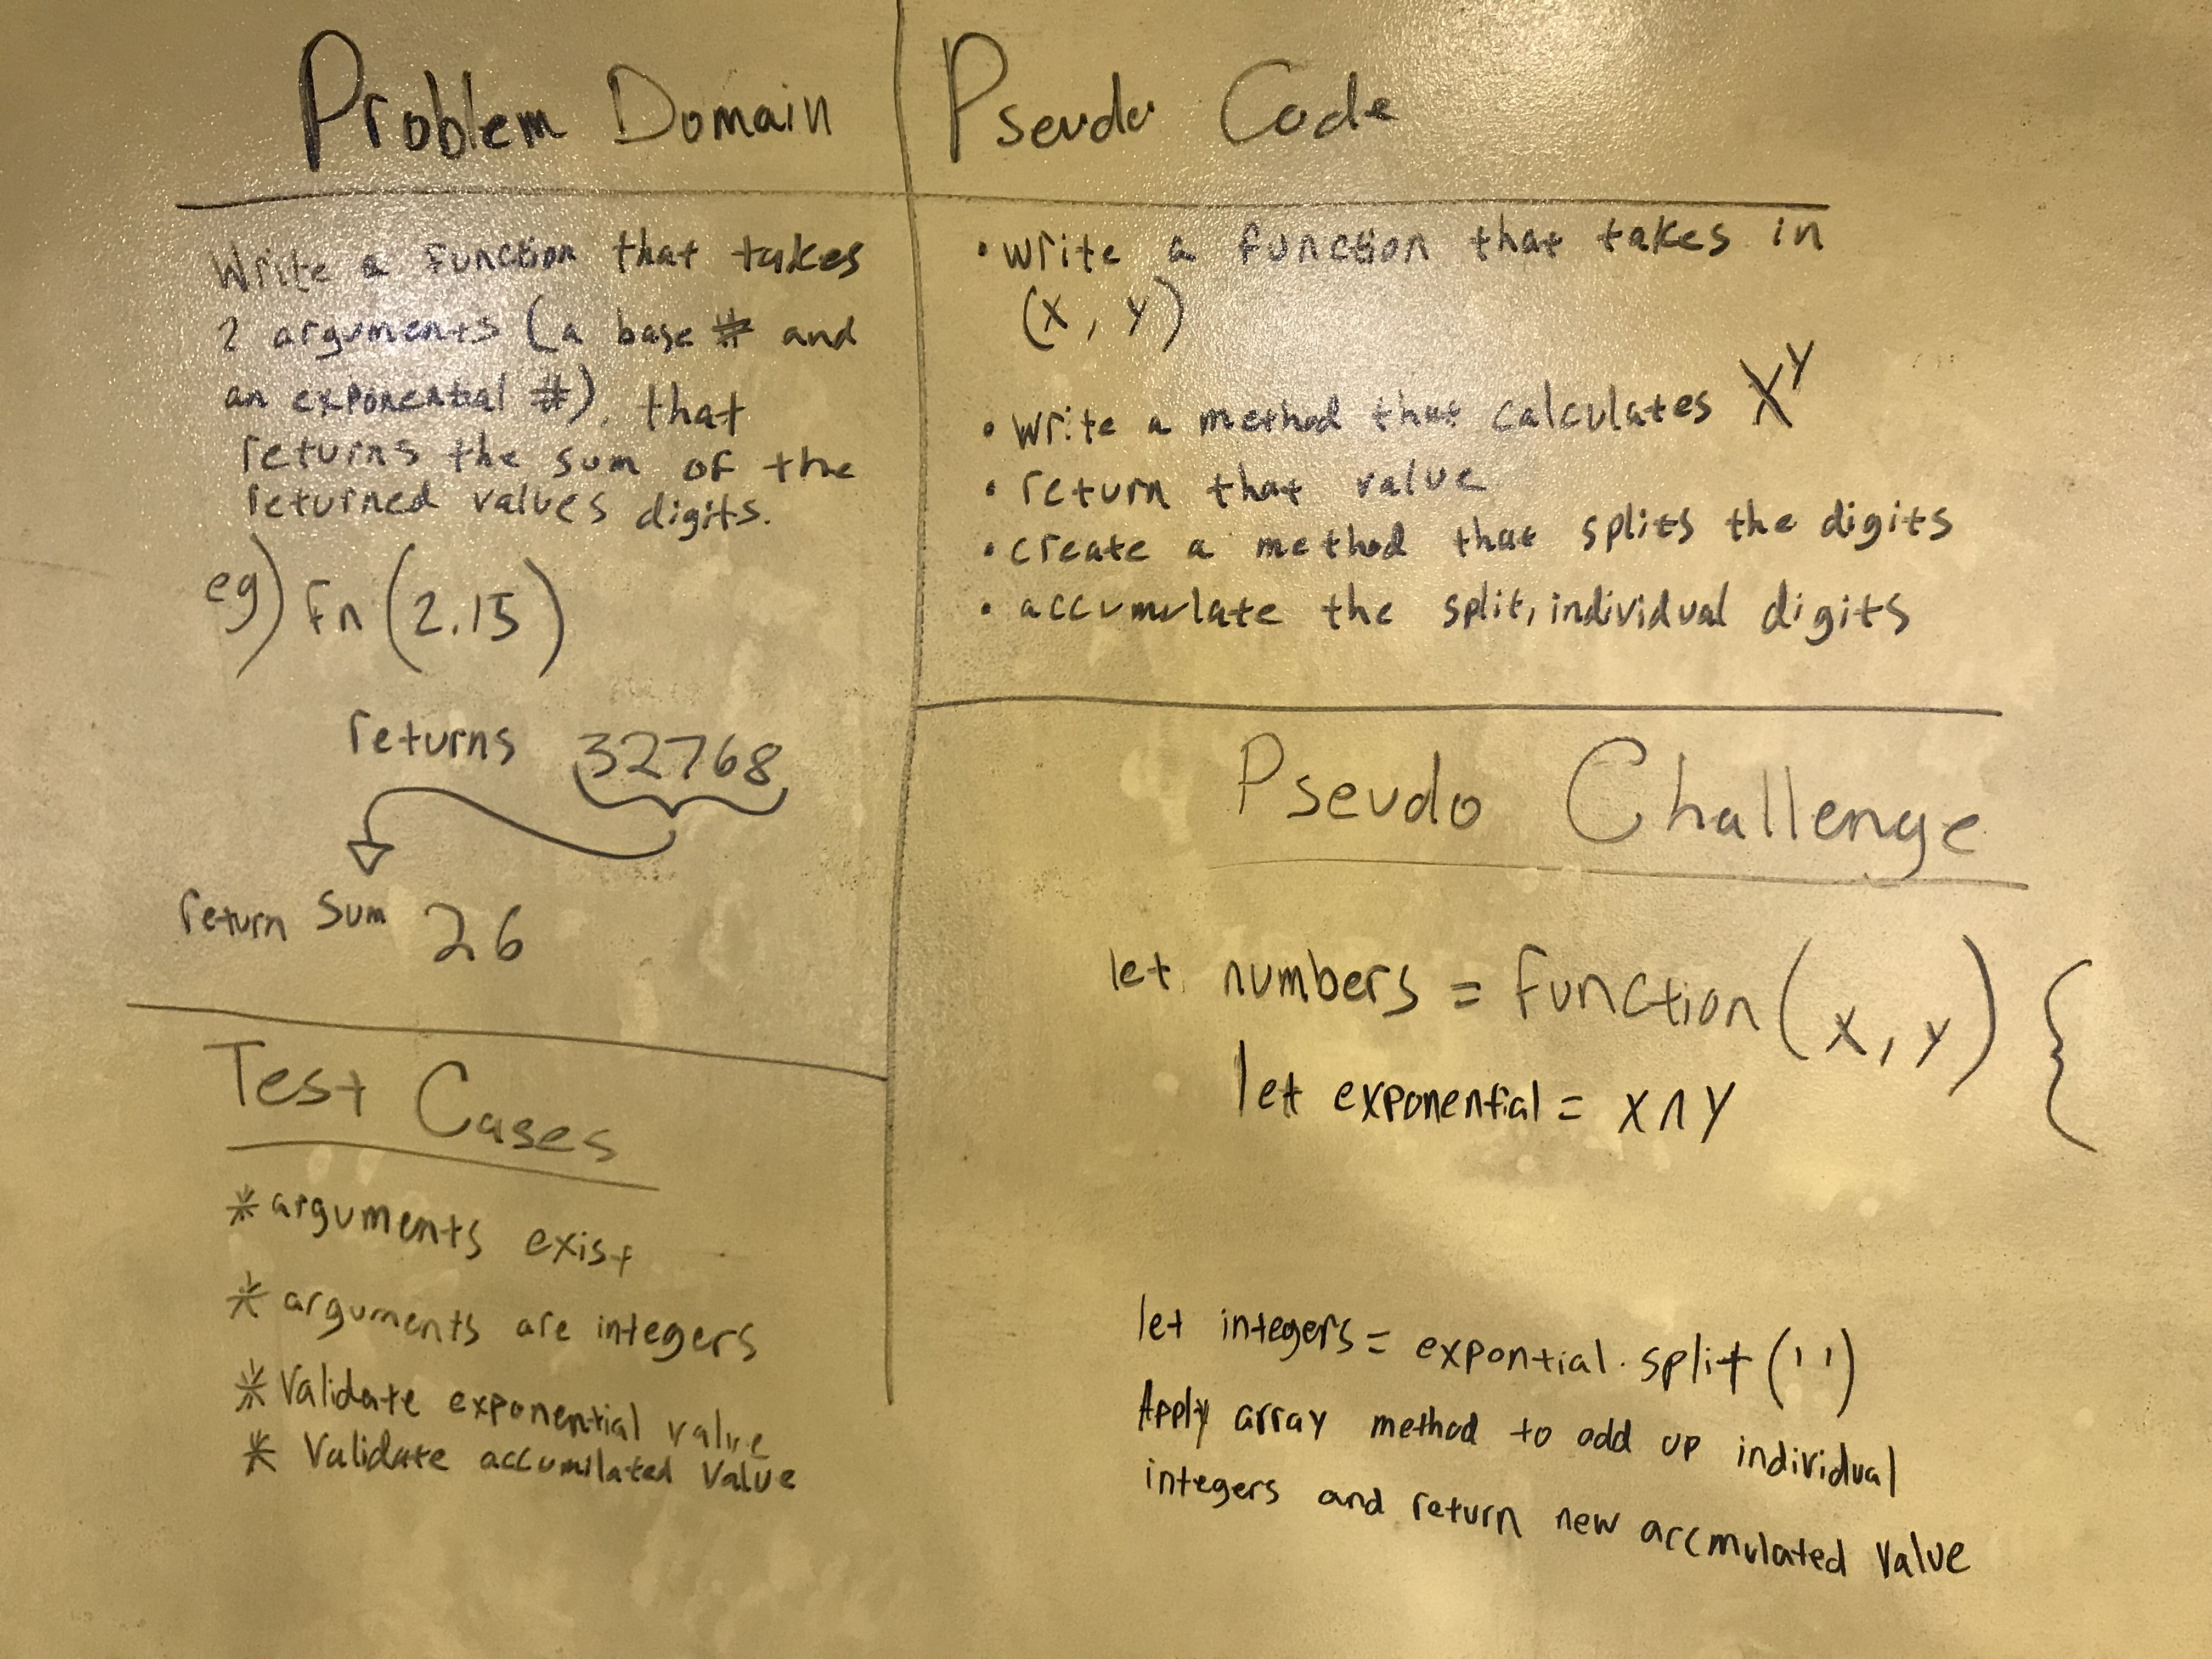 Problem Domain
Write a function that takes
2 arguments (a base # and
an exponential #), that
returns the sum of the
returned values digits.
eg) Fn (2,15)
returns 32768
return sum 26
Test Cases
* arguments exist
* arguments are integers
* Validate exponential value
* Validate accumilated value
Pseudo Code
• write a function that takes in
(x, y)
• write a method that calculates X^Y
• return that value
• create a method that splits the digits
• accumulate the split, individual digits
Pseudo Challenge
let numbers = function (x, y) {
let exponential = x ∧ y
let integers = expontial.split('')
Apply array method to add up individual
integers and return new accmulated value